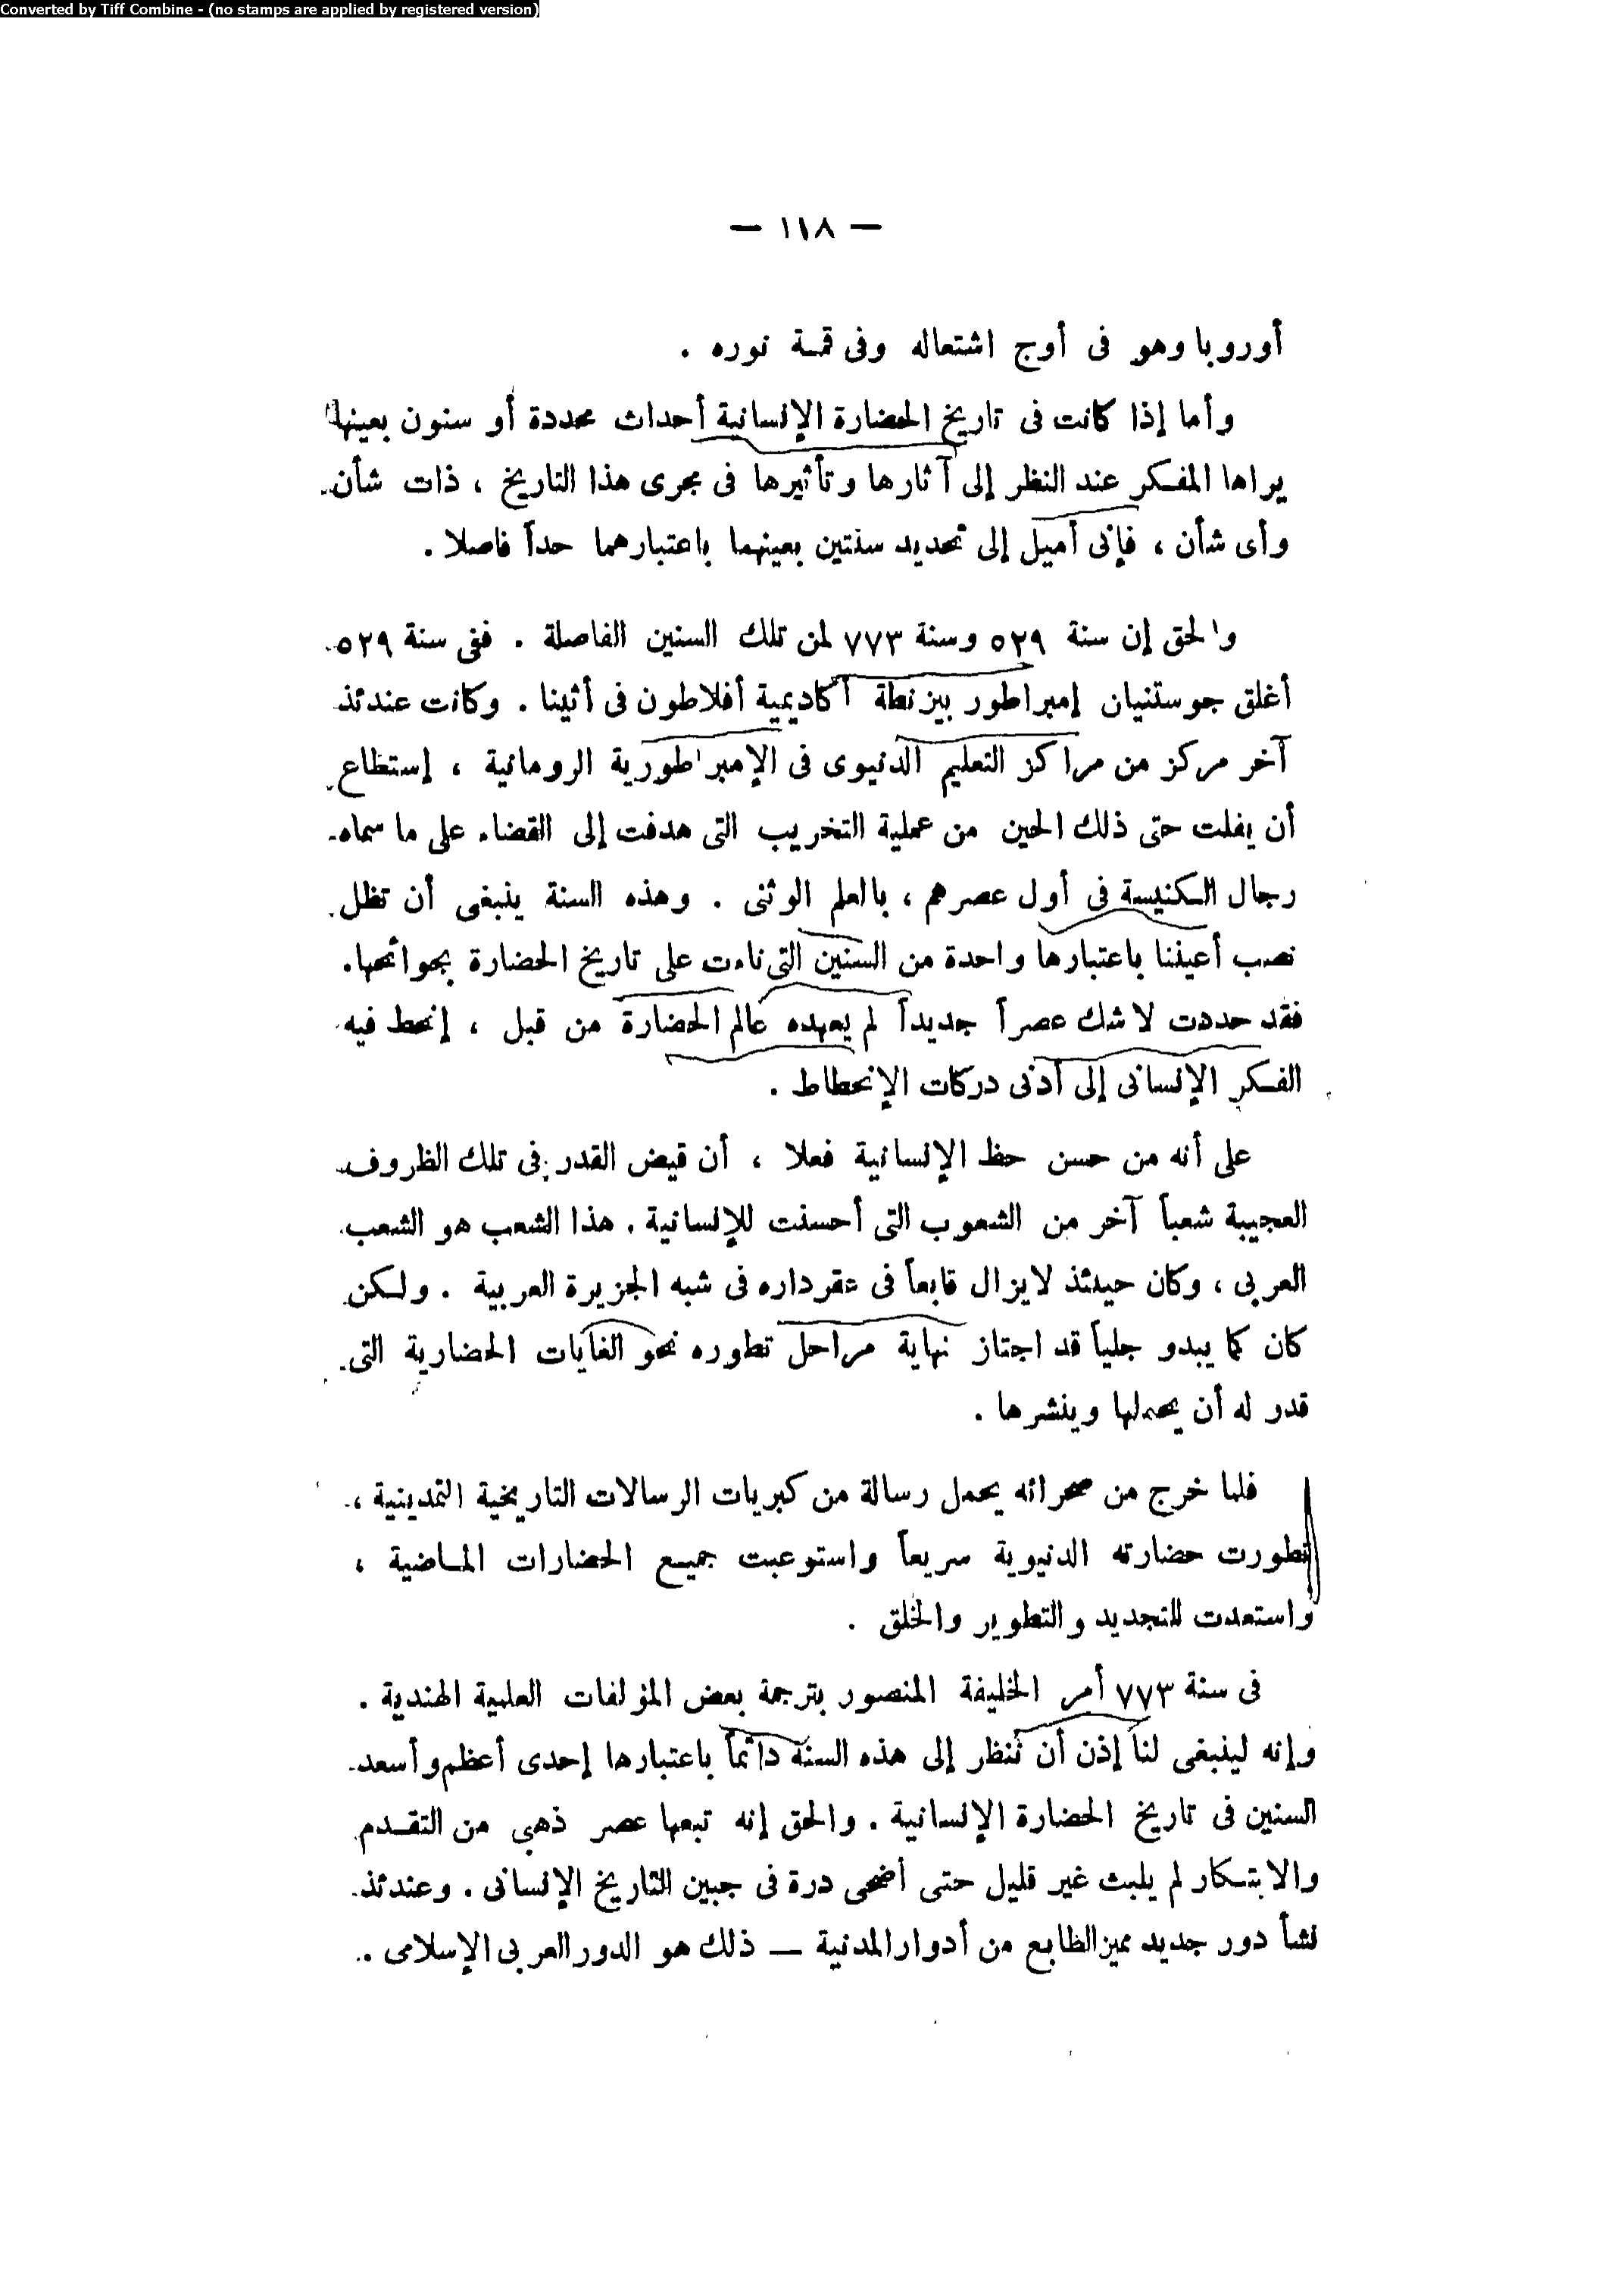 Converted by Tiff Combine - (no stamps are applied by registered version)
— ١١٨ —
أوروبا وهو فى أوج اشتعاله وفى قمة نوره .
وأما إذا كانت فى تاريخ الحضارة الإنسانية أحداث محددة أو سنون بعينها
يراها المفكر عند النظر إلى آثارها وتأثيرها فى مجرى هذا التاريخ ، ذات شأن
وأى شأن ، فإنى أميل إلى تحديد سنتين بعينهما باعتبارهما حداً فاصلا .
والحق إن سنة ٥٢٩ وسنة ٧٧٣ لمن تلك السنين الفاصلة . ففى سنة ٥٢٩
أغلق جوستنيان إمبراطور بيزنطة أكاديمية أفلاطون فى أثينا . وكانت عندئذ
آخر مركز من مراكز التعليم الدنيوى فى الإمبراطورية الرومانية ، إستطاع
أن يفلت حتى ذلك الحين من عملية التخريب التى هدفت إلى القضاء على ما سماه
رجال الكنيسة فى أول عصرهم ، بالعلم الوثنى . وهذه السنة ينبغى أن تظل
نصب أعيننا باعتبارها واحدة من السنين التى ناءت على تاريخ الحضارة بجوائحها.
فقد حددت لاشك عصراً جديداً لم يعهده عالم الحضارة من قبل ، إنحط فيه
الفكر الإنسانى إلى أدنى دركات الإنحطاط .
على أنه من حسن حظ الإنسانية فعلا ، أن قيض القدر فى تلك الظروف
العجيبة شعباً آخر من الشعوب التى أحسنت للإنسانية . هذا الشعب هو الشعب
العربى ، وكان حينئذ لايزال قابعاً فى عقرداره فى شبه الجزيرة العربية . ولكن
كان كما يبدو جلياً قد اجتاز نهاية مراحل تطوره نحو الغايات الحضارية التى
قدر له أن يحملها وينشرها .
فلما خرج من صحرائه يحمل رسالة من كبريات الرسالات التاريخية التمدينية ،
تطورت حضارته الدنيوية سريعاً واستوعبت جميع الحضارات الماضية ،
واستعدت للتجديد والتطوير والخلق .
فى سنة ٧٧٣ أمر الخليفة المنصور بترجمة بعض المؤلفات العلمية الهندية .
وإنه لينبغى لنا إذن أن ننظر إلى هذه السنة دائماً باعتبارها إحدى أعظم وأسعد
السنين فى تاريخ الحضارة الإنسانية . والحق إنه تبعها عصر ذهبى من التقدم
والابتكار لم يلبث غير قليل حتى أضحى درة فى جبين التاريخ الإنسانى . وعندئذ
نشأ دور جديد مميز الطابع من أدوار المدنية — ذلك هو الدور العربى الإسلامى .